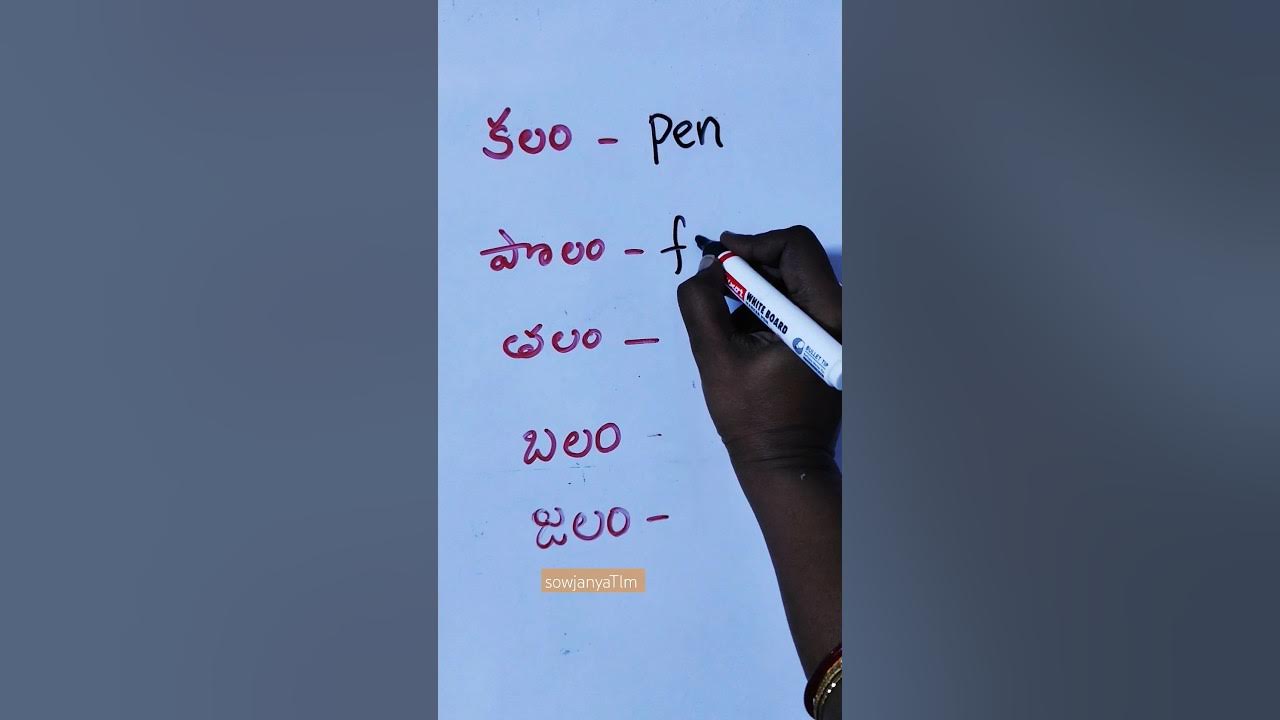 కలం - pen
పొలం - f
తలం -
బలం -
జలం -
WHITE BOARD
BULLET TIP
sowjanyaTlm